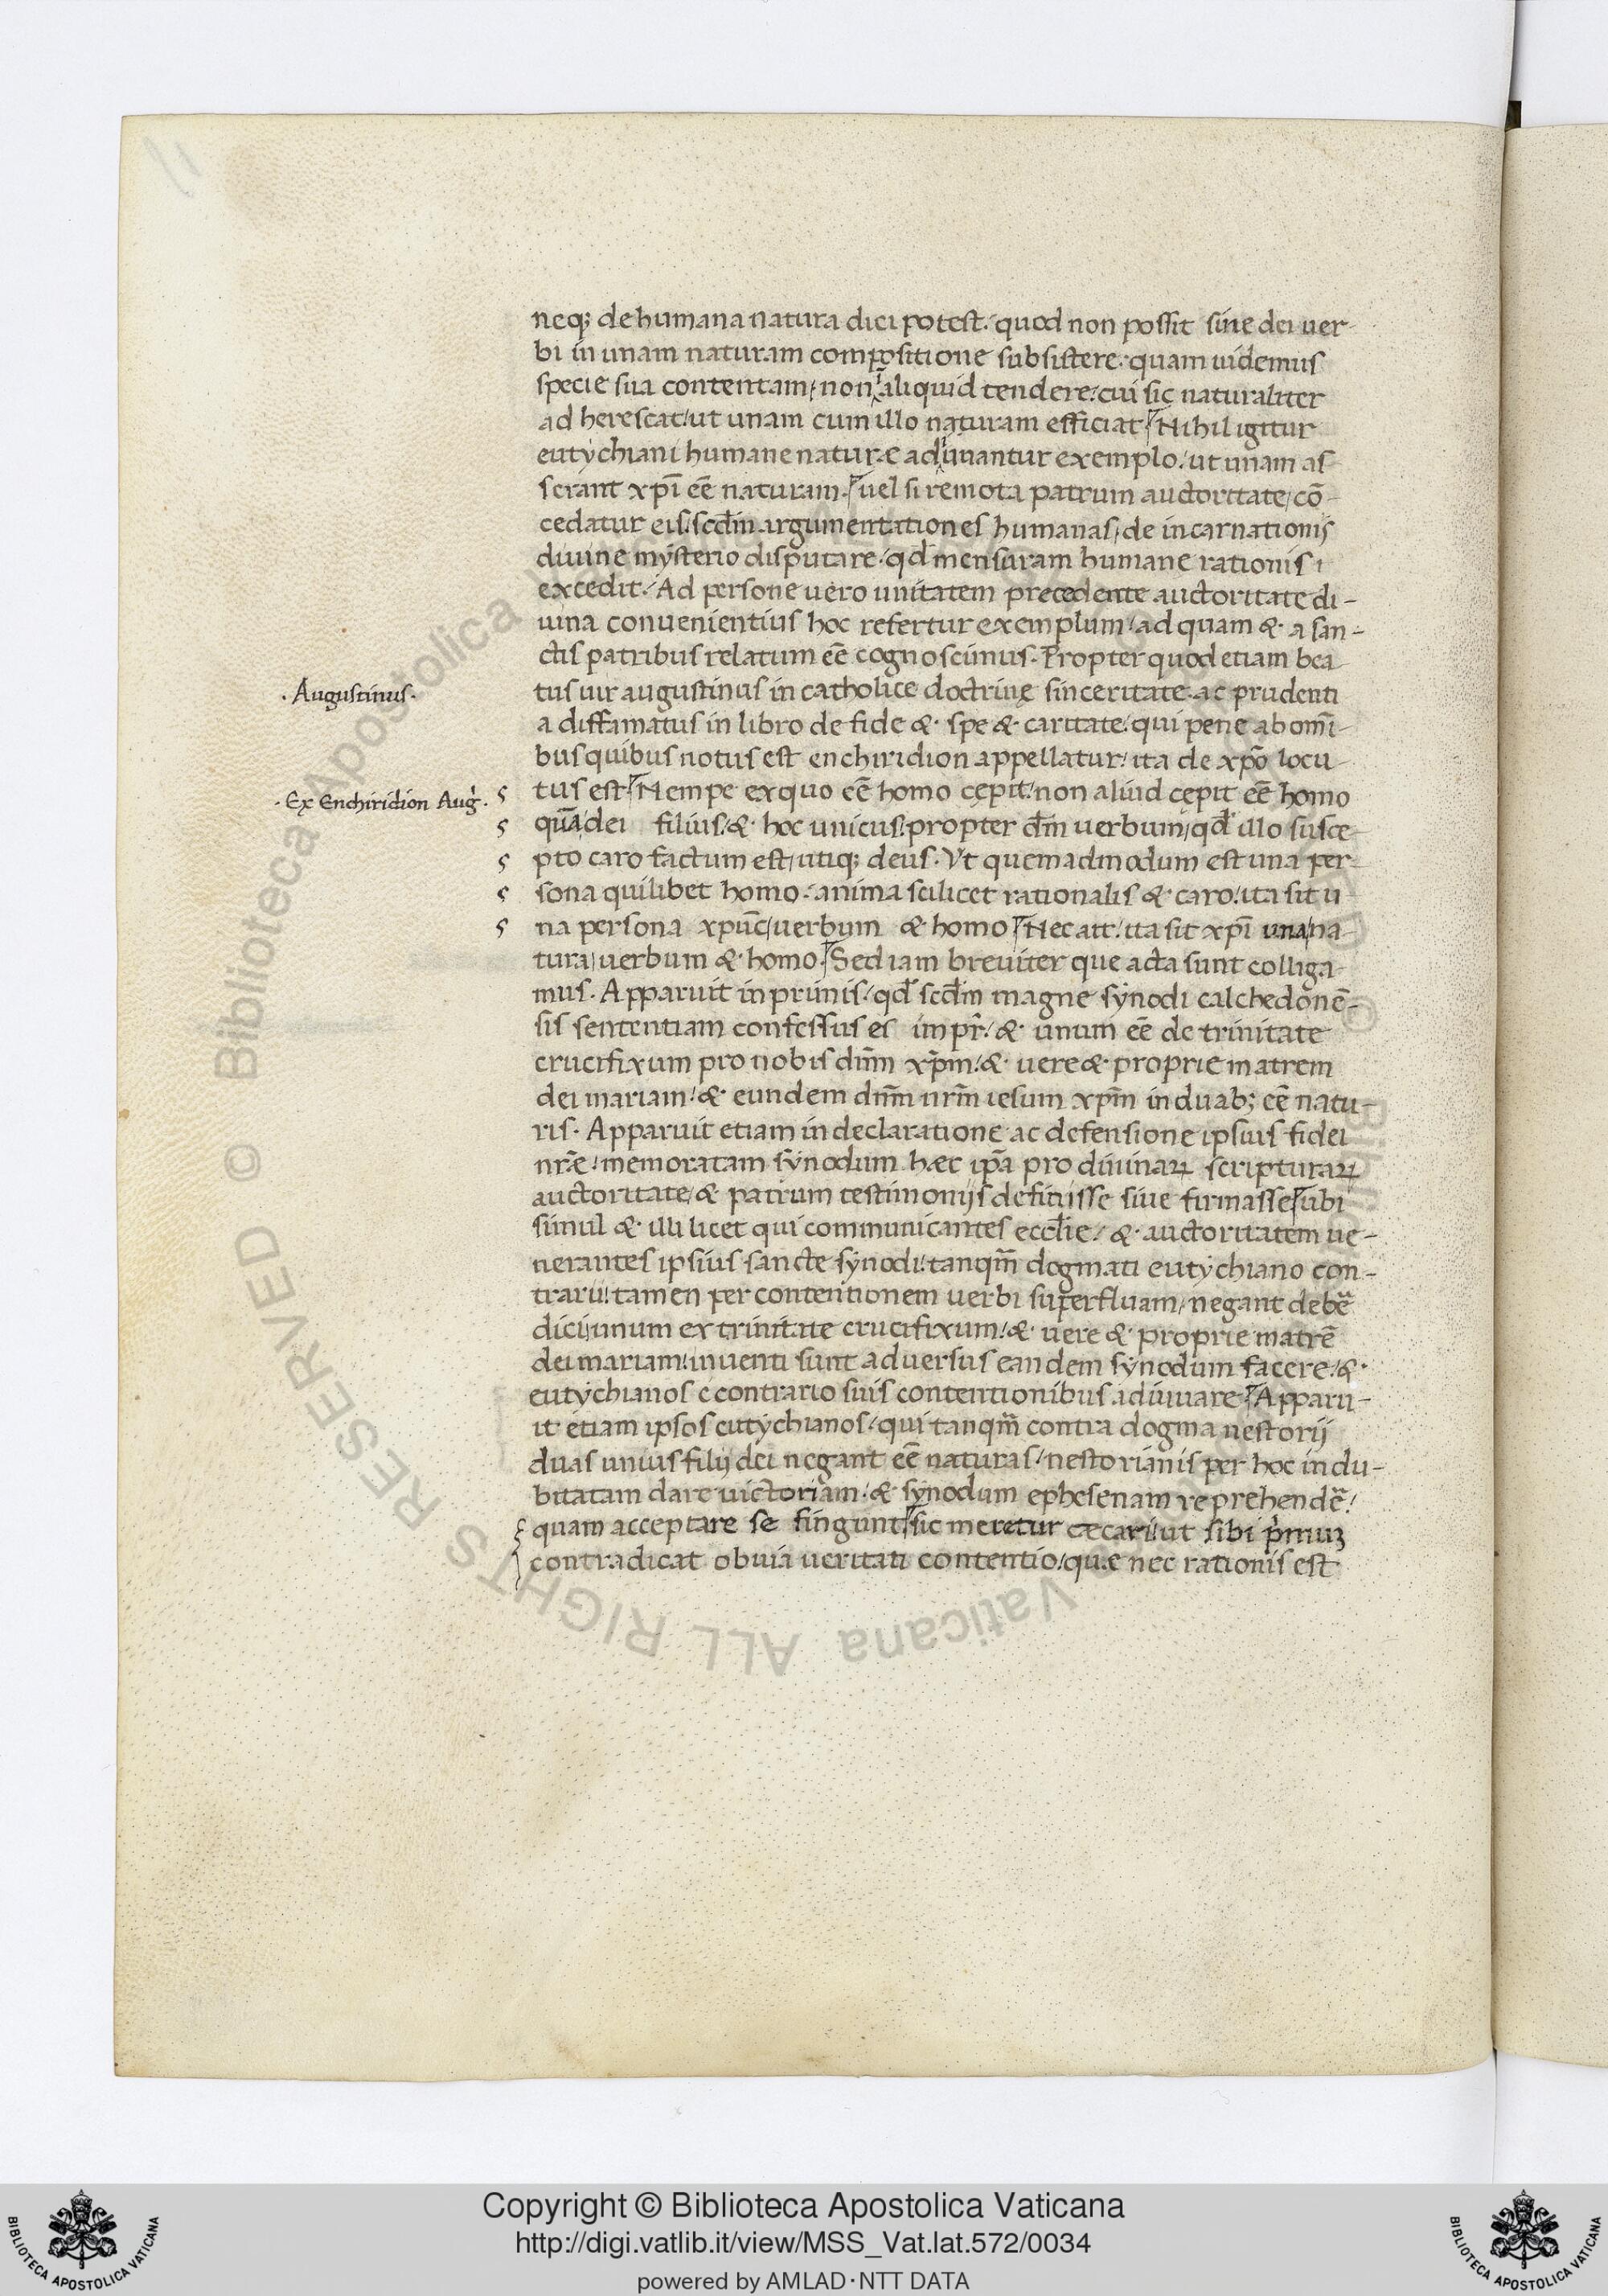 neq; de humana natura dici potest. quod non possit sine dei uer-
bi in unam naturam compositione subsistere. quam uidemus
specie sua contentam, non aliquid tendere. cui sic naturaliter
ad herescat. ut unam cum illo naturam efficiat. Nihil igitur
eutychiani humane naturæ adiuuantur exemplo. ut unam as-
serant xp̄i eē naturam. uel si remota patrum auctoritate, cō-
cedatur eis, scd̄m argumentationes humanas, de incarnationis
diuine mysterio disputare. qd̄ mensuram humane rationis
excedit. Ad persone uero unitatem precedente auctoritate di-
uina conuenientius hoc refertur exemplum, ad quam & a san-
ctis patribus relatum eē cognoscimus. Propter quod etiam bea-
.Augustinus.
tus uir augustinus in catholice doctrinę sinceritate ac prudenti
a diffamatus in libro de fide & spe & caritate, qui pene ab om̄i-
bus quibus notus est enchiridion appellatur. ita de xp̄o locu-
.Ex Enchiridion Aug̃.
tus est. Nempe ex quo eē homo cępit, non aliud cępit eē homo
quā dei filius, & hoc unicus, propter d̄m uerbum, qd̄ illo susce-
pto caro factum est, utiq; deus. Vt quemadmodum est una per-
sona quilibet homo. anima scilicet rationalis & caro, ita sit u-
na persona xpūc, uerbum & homo. Nec ait. ita sit xp̄i una na-
tura, uerbum & homo. Sed iam breuiter que acta sunt colliga-
mus. Apparuit in primis, qd̄ scd̄m magne synodi calchedonē-
sis sententiam confessus es impr̃. & unum eē de trinitate
crucifixum pro nobis dn̄m xp̄m. & uere & proprie matrem
dei mariam, & eundem dn̄m nr̄m iesum xp̄m in duab; eē natu-
ris. Apparuit etiam in declaratione ac defensione ipsius fidei
nr̄e. memoratam synodum hæc ip̄a pro diuinaꝝ scripturaꝝ
auctoritate, & patrum testimonijs definisse siue firmasse. ubi
simul & illi licet qui communicantes eccl̄ie. & auctoritatem ue-
nerantes ipsius sancte synodi. tanqm̄ dogmati eutychiano con-
trarii. tamen per contentionem uerbi superfluam, negant debē
dici, unum ex trinitate crucifixum. & uere & proprie matrē
dei mariam. inuenti sunt aduersus eandem synodum facere. &
eutychianos e contrario suis contentionibus adiuuare. Apparu-
it etiam ipsos eutychianos. qui tanqm̄ contra dogma nestorij
duas unius filij dei negant eē naturas. nestorianis per hoc indu-
bitatam dare uictoriam. & synodum ephesenam reprehendē.
quam acceptare se fingunt. sic meretur cæcari. ut sibi p̄muꝫ
contradicat obuia ueritati contentio. quæ nec rationis est
Copyright © Biblioteca Apostolica Vaticana
http://digi.vatlib.it/view/MSS_Vat.lat.572/0034
powered by AMLAD·NTT DATA
BIBLIOTECA APOSTOLICA VATICANA
BIBLIOTECA APOSTOLICA VATICANA
© Biblioteca Apostolica Vaticana ALL RIGHTS RESERVED